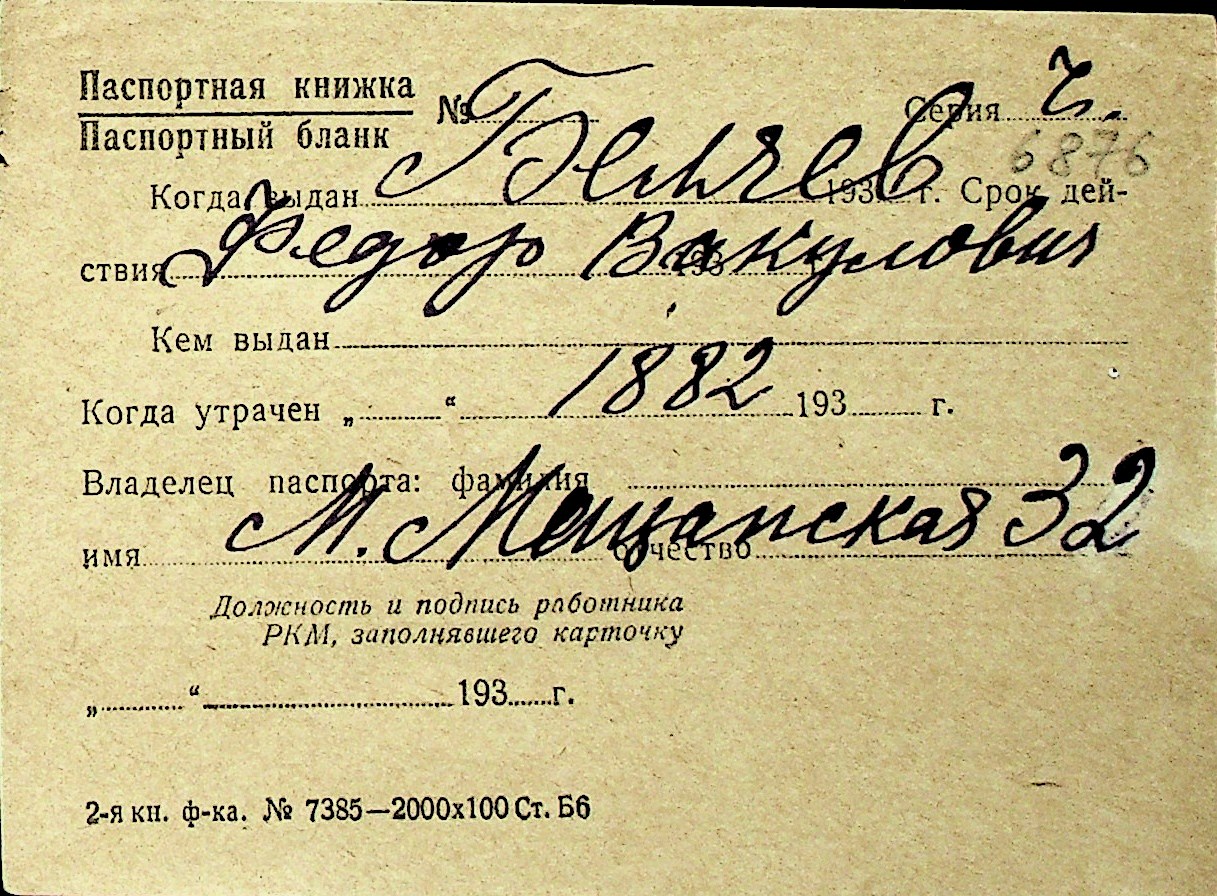 Паспортная книжка
Паспортный бланк № Серия ч.
6876
Беляев
Когда выдан 193 г. Срок дей-
Федор Вакулович
ствия 193
Кем выдан
1882
Когда утрачен „ “ 193 г.
Владелец паспорта: фамилия
М. Мещанская 32
имя отчество
Должность и подпись работника
РКМ, заполнявшего карточку
„ “ 193 г.
2-я кн. ф-ка. № 7385—2000х100 Ст. Б6